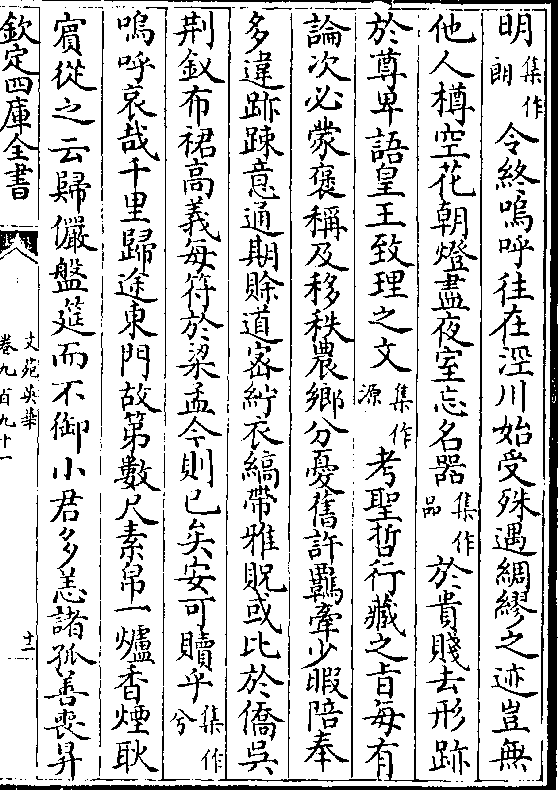 明集作朗令終嗚呼往在涇川始受殊遇綢繆之迹豈無
他人樽空花朝燈盡夜室忘名器集作品於貴賤去形跡
於尊卑語皇王致理之文集作源考聖哲行藏之旨每有
論次必蒙褒稱及移秩農鄉分憂舊許羈牽少暇陪奉
多違跡踈意通期賖道密紵衣縞帶雅貺或比於僑吳
荆釵布裙高義每符於梁孟今則已矣安可贖乎集作兮
嗚呼哀哉千里歸途東門故第數尺素帛一爐香煙耿
賓從之云歸儼盤筵而不御小君多恙諸孤善喪昇
欽定四庫全書
文苑英華
卷九百九十一
十二